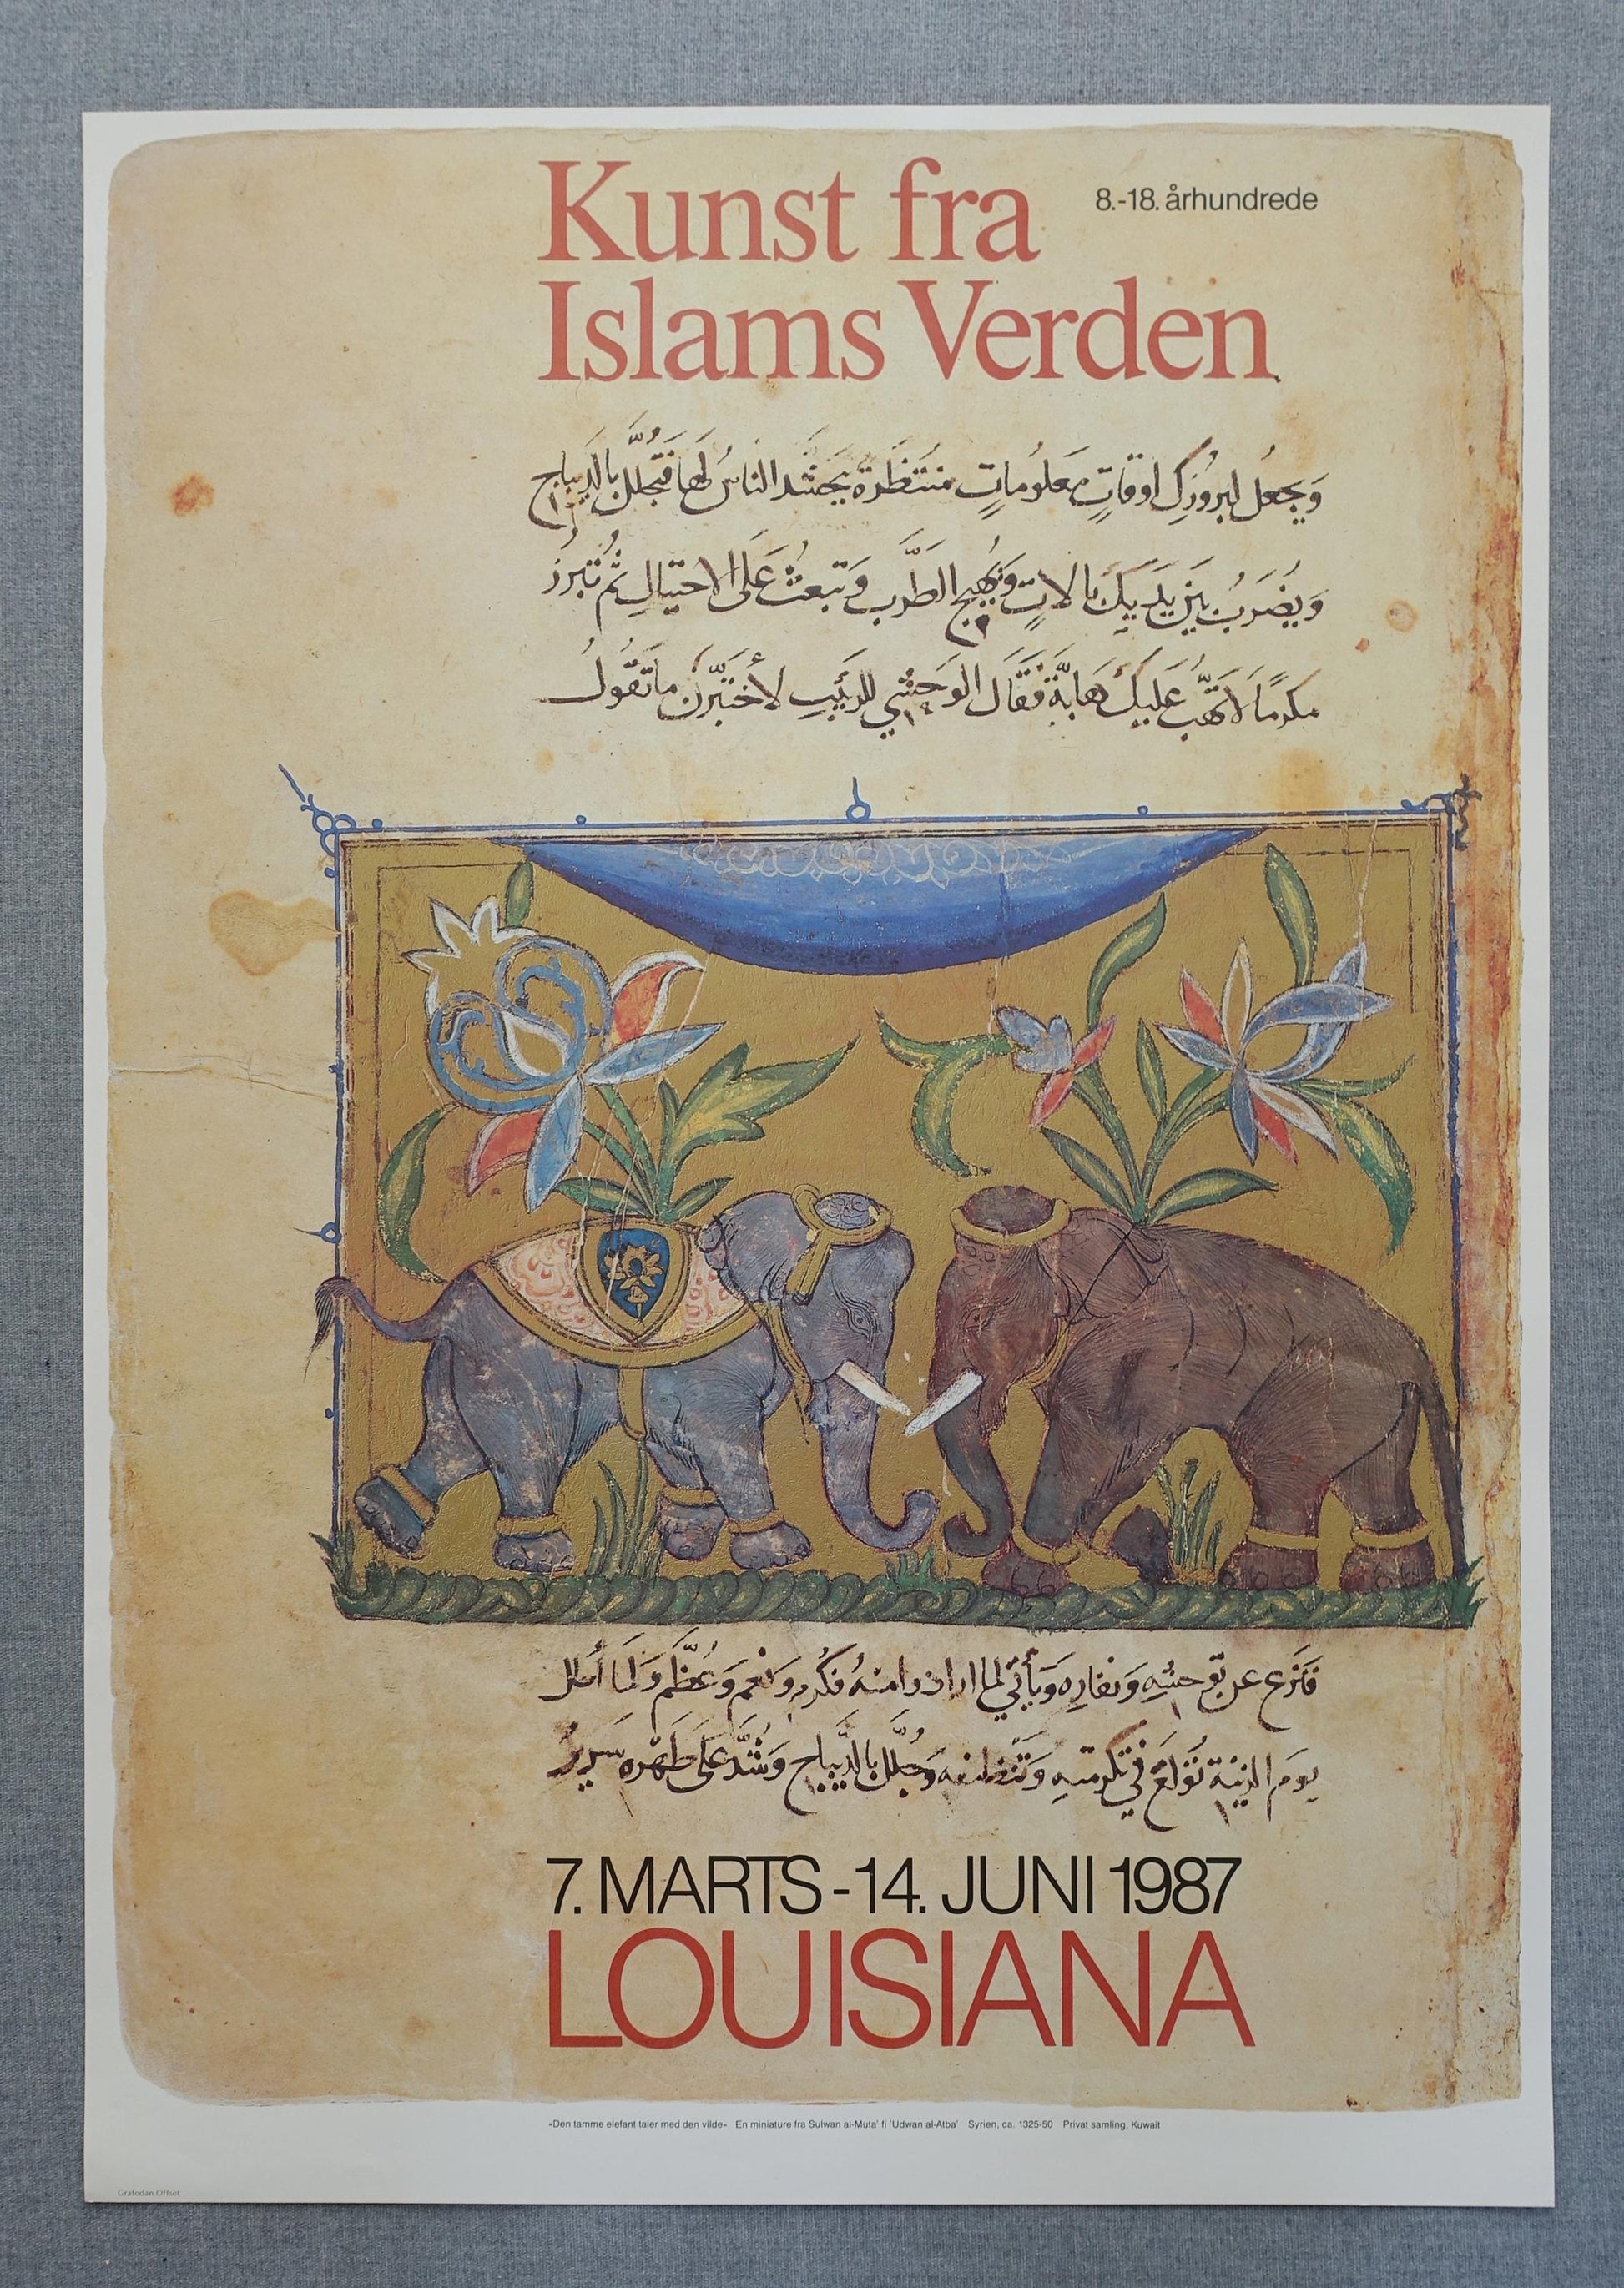 Kunst fra
Islams Verden
8.-18. århundrede
وَيجعَلُ لبروزِكَ اوقاتٍ مَعلُوماتٍ منتَظَرَة يَحشد الناسُ لَهَا فَتُجَلَّلُ بالدِيباج
وَيُضرَبُ بَيْنَ يَدَيكَ بالاتٍ وَتُهِيجُ الطَّرَب وَتبعَثُ عَلَى الاحتيالِ ثُم تبرُز
مكرمًا لا تَهُبّ عليكَ هابَّة فقَالَ الوَحشي للربَيبِ لأختبِرَنّ ما تَقُولُ
فنَزع عن توَحشِهِ وَنفارِه وَيَأتي لما ارادَ وامنهُ فَكُرمَ وَنعِمَ وَعُظِّمَ وَلَمَا أطلَ
يومَ الزينة تُوَلعَ في تكرمتهِ وَتنظيفه وَجُلِّلَ بالدِيباج وَشُدّ عَلَى ظَهْره سَرير
7. MARTS - 14. JUNI 1987
LOUISIANA
»Den tamme elefant taler med den vilde« En miniature fra Sulwan al-Muta' fi 'Udwan al-Atba' Syrien, ca. 1325-50 Privat samling, Kuwait
Grafodan Offset